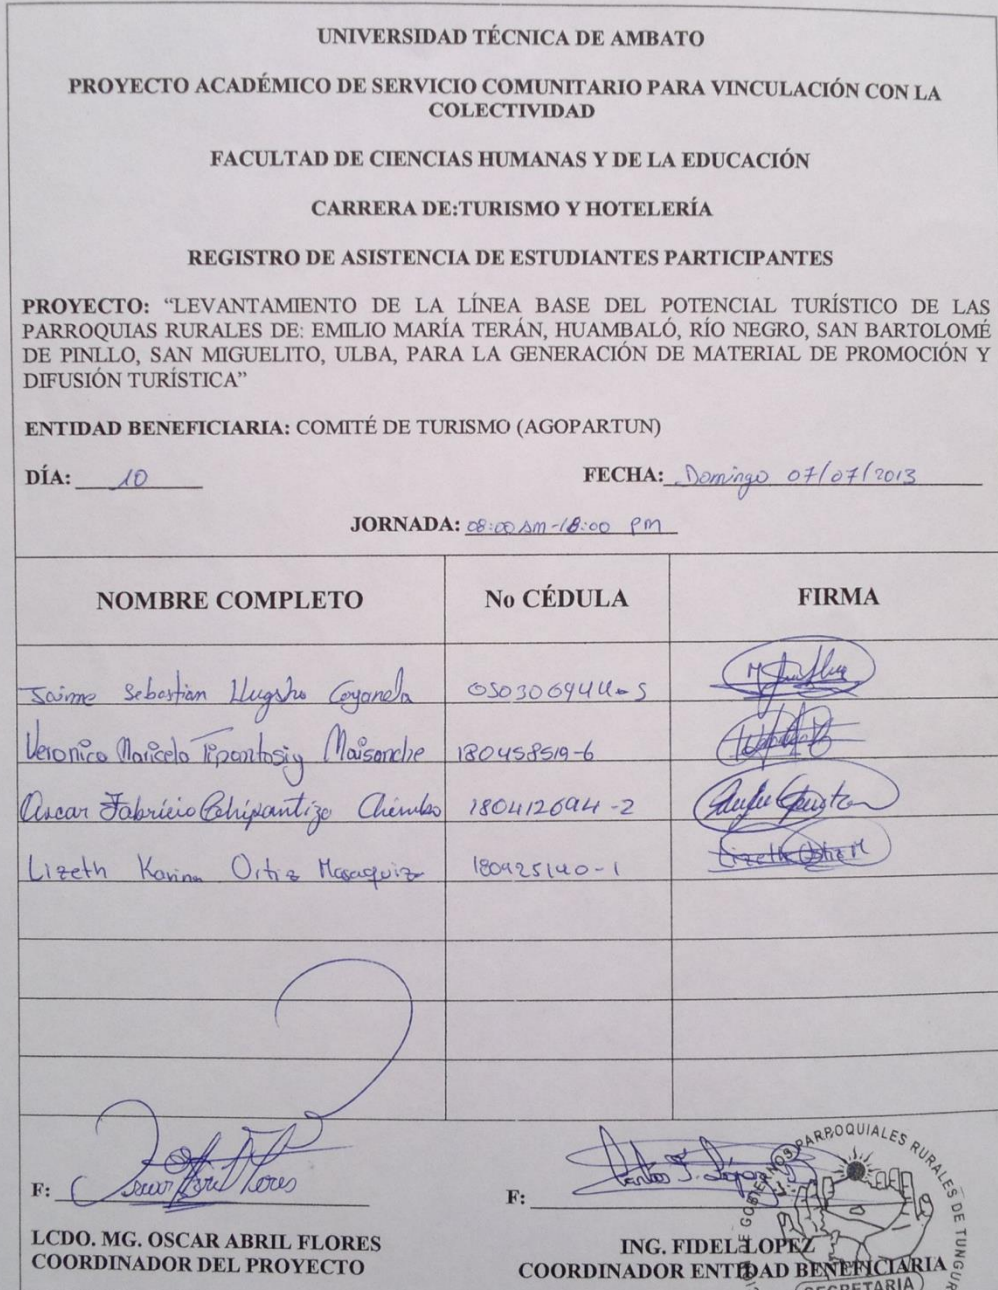 UNIVERSIDAD TÉCNICA DE AMBATO
PROYECTO ACADÉMICO DE SERVICIO COMUNITARIO PARA VINCULACIÓN CON LA
COLECTIVIDAD
FACULTAD DE CIENCIAS HUMANAS Y DE LA EDUCACIÓN
CARRERA DE:TURISMO Y HOTELERÍA
REGISTRO DE ASISTENCIA DE ESTUDIANTES PARTICIPANTES
PROYECTO: “LEVANTAMIENTO DE LA LÍNEA BASE DEL POTENCIAL TURÍSTICO DE LAS
PARROQUIAS RURALES DE: EMILIO MARÍA TERÁN, HUAMBALÓ, RÍO NEGRO, SAN BARTOLOMÉ
DE PINLLO, SAN MIGUELITO, ULBA, PARA LA GENERACIÓN DE MATERIAL DE PROMOCIÓN Y
DIFUSIÓN TURÍSTICA”
ENTIDAD BENEFICIARIA: COMITÉ DE TURISMO (AGOPARTUN)
DÍA: 10 FECHA: Domingo 07/07/2013
JORNADA: 08:00 AM-18:00 PM
NOMBRE COMPLETO No CÉDULA FIRMA
Jaime Sebastian
Veronica Maricela Tipantasig Maisanche 180458519-6
Oscar Fabricio Chimbo 180412694-2
Lizeth Karina Ortiz Masaquiza 180425140-1 Lizeth
F: Oscar Abril Flores F:
LCDO. MG. OSCAR ABRIL FLORES ING. FIDEL LOPEZ
COORDINADOR DEL PROYECTO COORDINADOR ENTIDAD BENEFICIARIA
GOBIERNOS PARROQUIALES RURALES DE
SECRETARIA